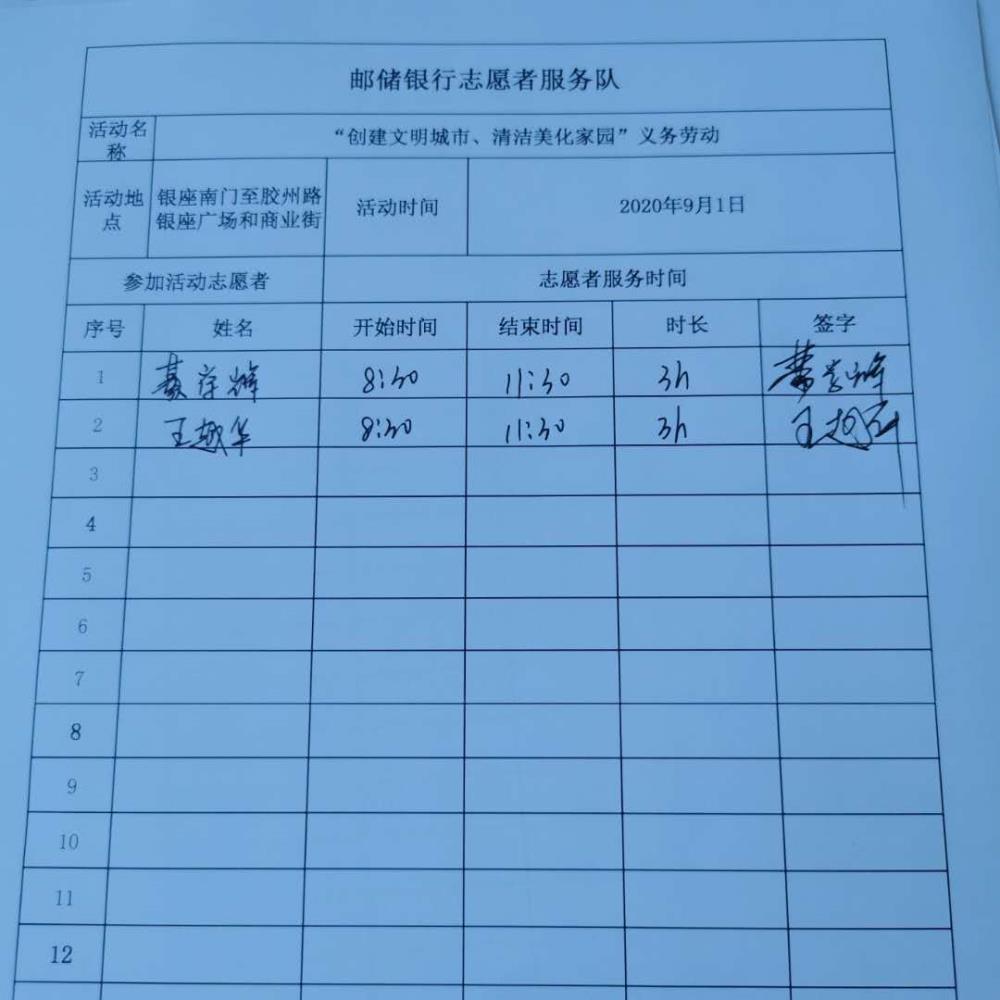 邮储银行志愿者服务队
活动名称 “创建文明城市、清洁美化家园”义务劳动
活动地点 银座南门至胶州路银座广场和商业街 活动时间 2020年9月1日
参加活动志愿者 志愿者服务时间
序号 姓名 开始时间 结束时间 时长 签字
1 8:30 11:30 3h
2 王越华 8:30 11:30 3h 王越华
3
4
5
6
7
8
9
10
11
12